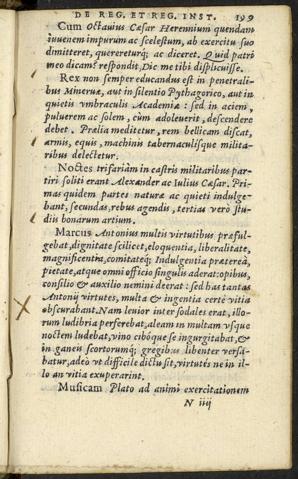 DE REG. ET REG. INST. 199
Cum Octauius Cæsar Herennium quendam
iuuenem impurum ac scelestum, ab exercitu suo
dimitteret, querereturq; ac diceret. Quid patri
meo dicam? respondit, Dic me tibi displicuisse.
Rex non semper educandus est in penetrali-
bus Mineruæ, aut in silentio Pythagorico, aut in
quietis vmbraculis Academiæ : sed in aciem,
puluerem ac solem, cùm adoleuerit, descendere
debet. Prælia meditetur, rem bellicam discat,
armis, equis, machinis tabernaculisque milita-
ribus delectetur.
Noctes trifariàm in castris militaribus par-
tiri soliti erant Alexander ac Iulius Cæsar. Pri-
mas quidem partes naturæ ac quieti indulge-
bant, secundas, rebus agendis, tertias verò stu-
diis bonarum artium.
Marcus Antonius multis virtutibus præful-
gebat, dignitate scilicet, eloquentia, liberalitate,
magnificentia, comitateq; Indulgentia prætereà,
pietate, atque omni officio singulis aderat: opibus,
consilio & auxilio nemini deerat : sed has tantas
Antonij virtutes, multa & ingentia certè vitia
obscurabant. Nam leuior inter sodales erat, illo-
rum ludibria perferebat, aleam in multam vsque
noctem ludebat, vino cibóque se ingurgitabat, &
in ganeis scortorumq; gregibus libenter versa-
batur, adeò vt difficile dictu sit, virtutés ne in il-
lo an vitia exuperarint.
Musicam Plato ad animi exercitationem
N iiij